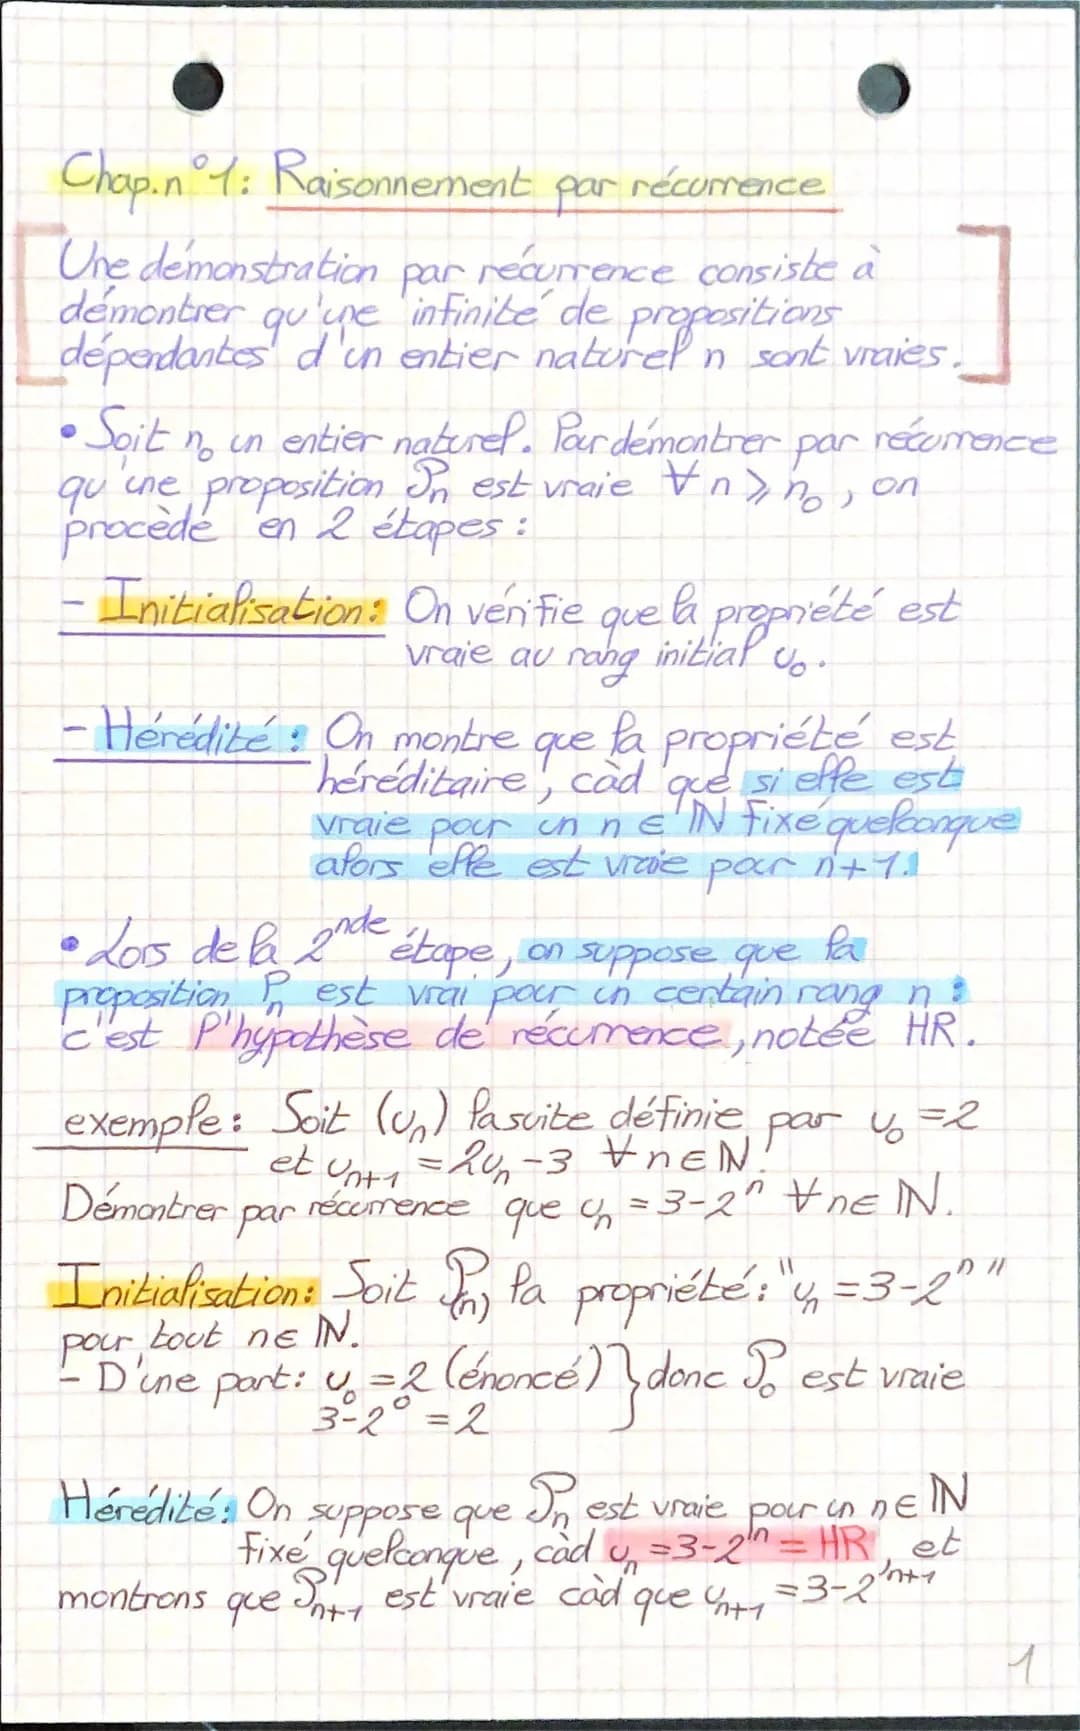 Chap.n°1: Raisonnement par récurrence
Une démonstration par récurrence consiste à
démontrer qu'une infinité de propositions
dépendantes d'un entier naturel n sont vraies.
• Soit n₀ un entier naturel. Pour démontrer par récurrence
qu'une proposition Pn est vraie ∀ n ⩾ n₀, on
procède en 2 étapes :
- Initialisation: On vérifie que la propriété est
vraie au rang initial u₀.
- Hérédité : On montre que la propriété est
héréditaire, càd que si elle est
vraie pour un n ∈ ℕ fixé quelconque
alors elle est vraie pour n+1.
• Lors de la 2nde étape, on suppose que la
proposition Pn est vrai pour un certain rang n :
c'est l'hypothèse de récurrence, notée HR.
exemple: Soit (uₙ) la suite définie par u₀ = 2
et uₙ₊₁ = 2uₙ - 3 ∀ n ∈ ℕ.
Démontrer par récurrence que uₙ = 3-2ⁿ ∀ n ∈ ℕ.
Initialisation: Soit P(n) la propriété: "uₙ = 3-2ⁿ"
pour tout n ∈ ℕ.
- D'une part: u₀ = 2 (énoncé) } donc P₀ est vraie
3-2⁰ = 2
Hérédité: On suppose que Pn est vraie pour un n ∈ ℕ
fixé quelconque, càd uₙ = 3-2ⁿ = HR, et
montrons que Pn+1 est vraie càd que uₙ₊₁ = 3-2ⁿ⁺¹
1